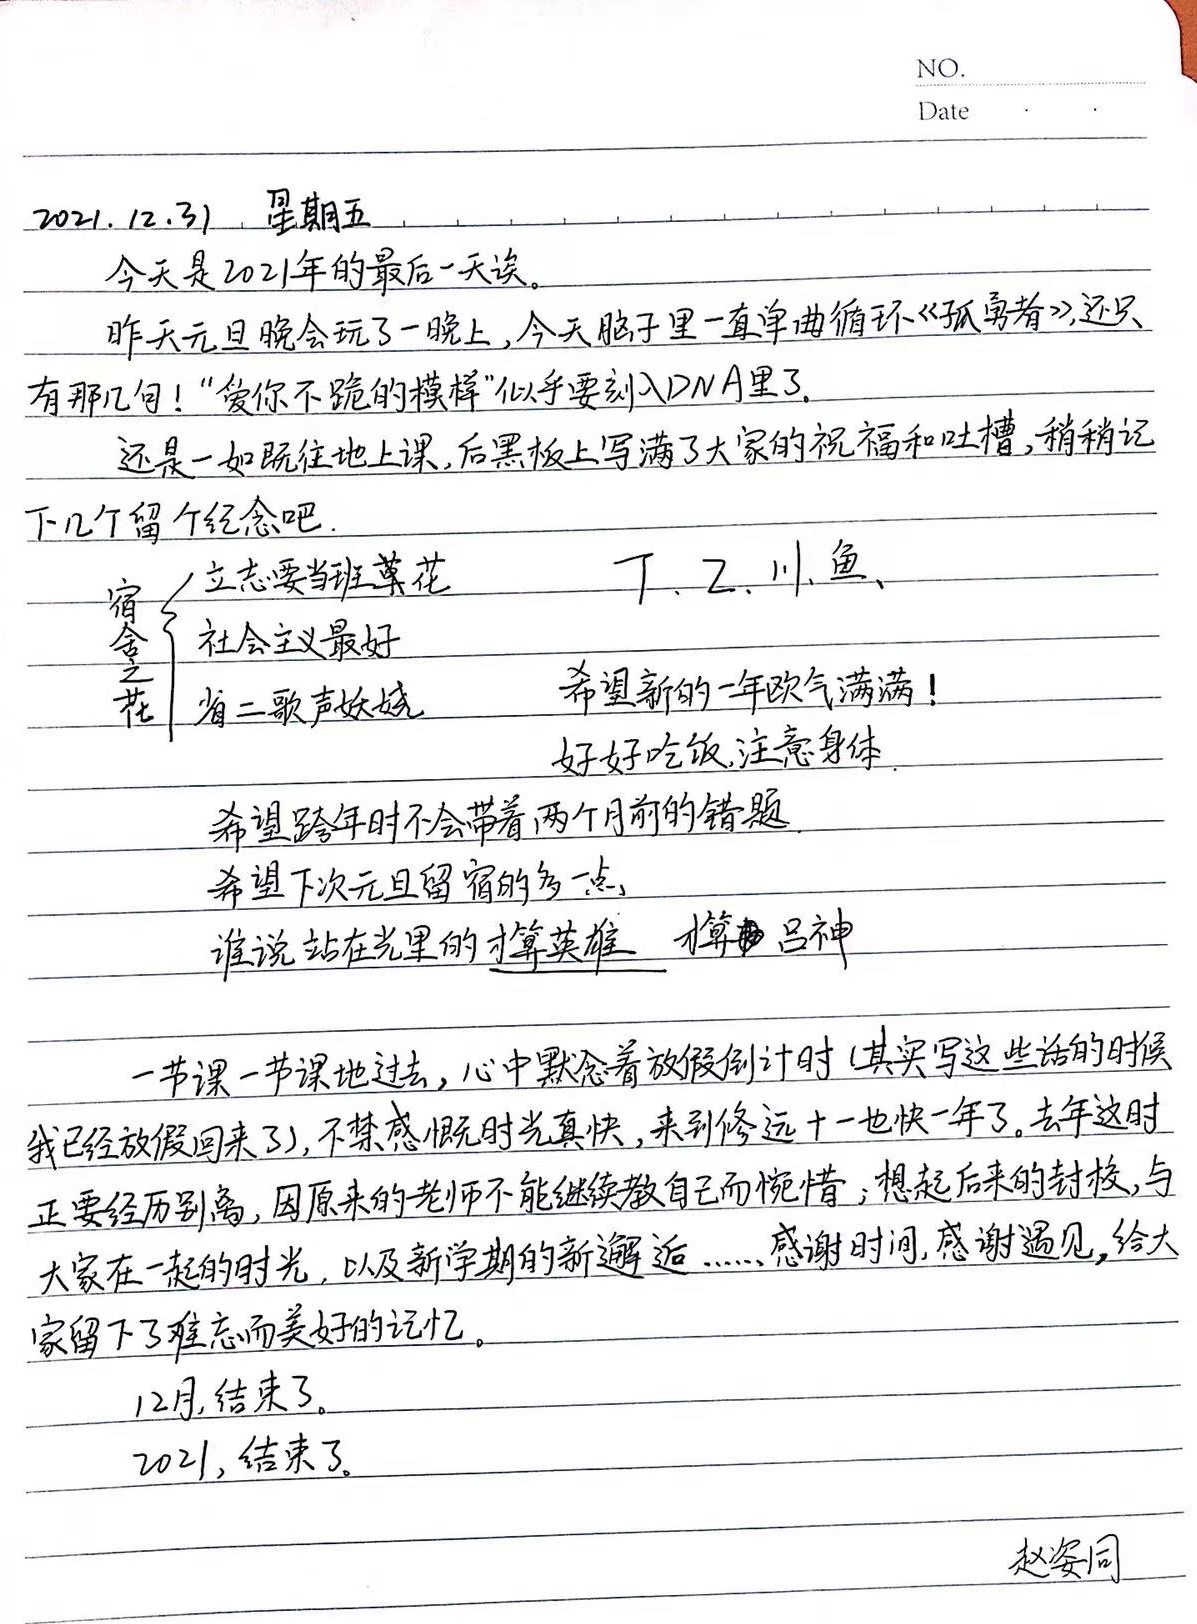 NO.
Date
2021.12.31 星期五
今天是2021年的最后一天诶。
昨天元旦晚会玩了一晚上,今天脑子里一直单曲循环《孤勇者》,还只
有那几句!“爱你不跪的模样”似乎要刻入DNA里了。
还是一如既往地上课,后黑板上写满了大家的祝福和吐槽,稍稍记
下几个留个纪念吧.
宿舍之花
立志要当班草花
社会主义最好
省二歌声妖娆
丁、乙、川、鱼、
希望新的一年欧气满满!
好好吃饭,注意身体.
希望跨年时不会带着两个月前的错题.
希望下次元旦留宿的多一点、
谁说站在光里的才算英雄 才算 吕神
一节课一节课地过去,心中默念着放假倒计时(其实写这些话的时候
我已经放假回来了),不禁感慨时光真快,来到修远十一也快一年了。去年这时
正要经历别离,因原来的老师不能继续教自己而惋惜;想起后来的封校,与
大家在一起的时光,以及新学期的新邂逅……感谢时间,感谢遇见,给大
家留下了难忘而美好的记忆。
12月,结束了。
2021,结束了。
赵姿同